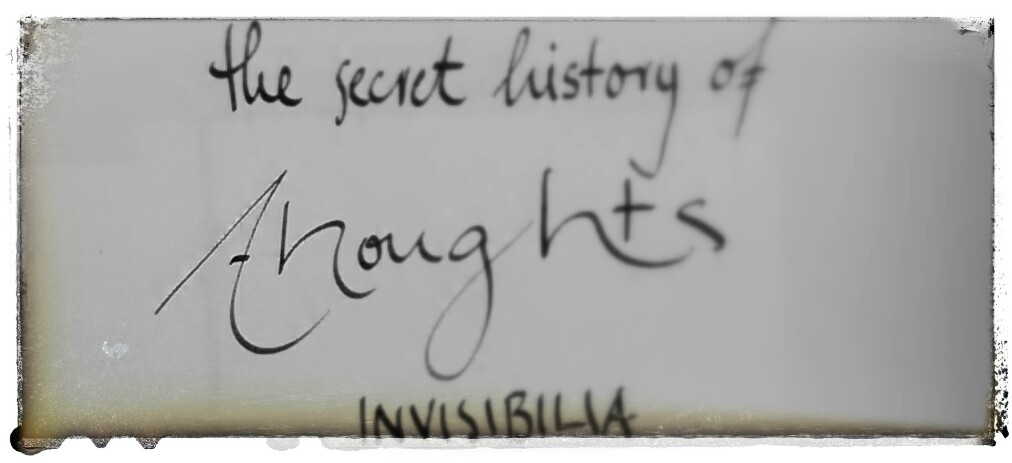 the secret history of
thoughts
INVISIBILIA